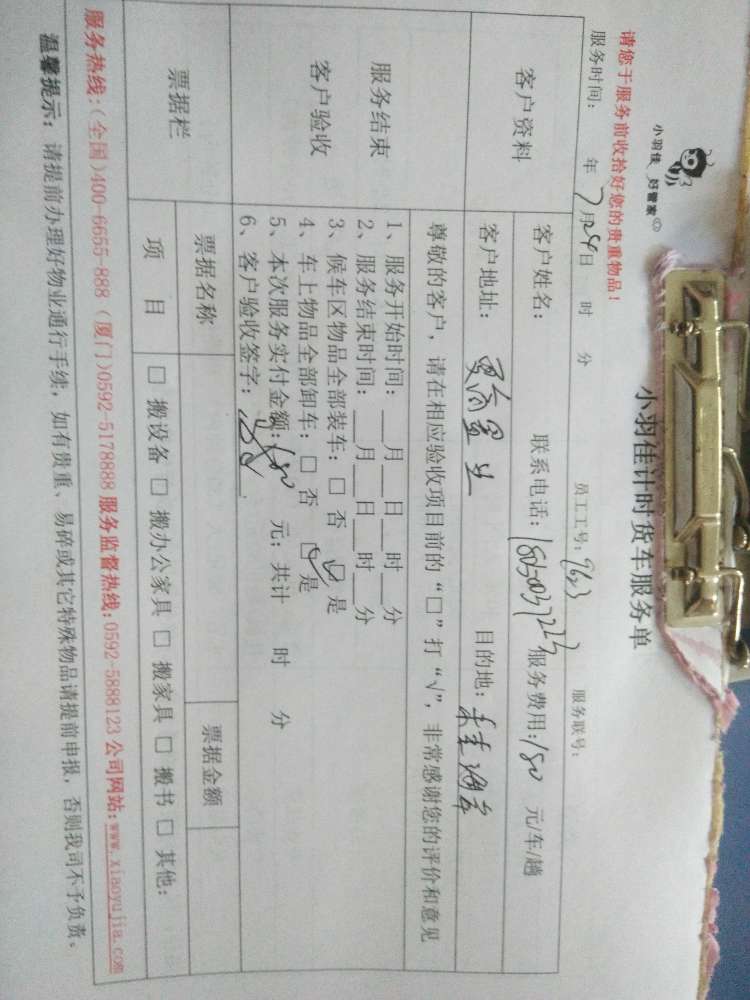 小羽佳 好管家
小羽佳计时货车服务单
请您于服务前收拾好您的贵重物品！
服务时间： 年 7月24日 时 分 员工工号：9623 服务联号：
客户资料
客户姓名： 联系电话：18650037223 服务费用：180 元/车/趟
客户地址： 目的地：
尊敬的客户，请在相应验收项目前的“□”打“√”，非常感谢您的评价和意见
服务结束
客户验收
1、服务开始时间：__月__日__时__分
2、服务结束时间：__月__日__时__分
3、候车区物品全部装车：□ 否 ☑ 是
4、车上物品全部卸车：□ 否 ☑ 是
5、本次服务实付金额：180 元；共计 时 分
6、客户验收签字：
票据栏
票据名称 票据金额
项 目 □ 搬设备 □ 搬办公家具 □ 搬家具 □ 搬书 □ 其他：
服务热线：（全国）400-6655-888（厦门）0592-5178888 服务监督热线：0592-5888123 公司网站：www.xiaoyujia.com
温馨提示：请提前办理好物业通行手续，如有贵重、易碎或其它特殊物品请提前申报，否则我司不予负责。